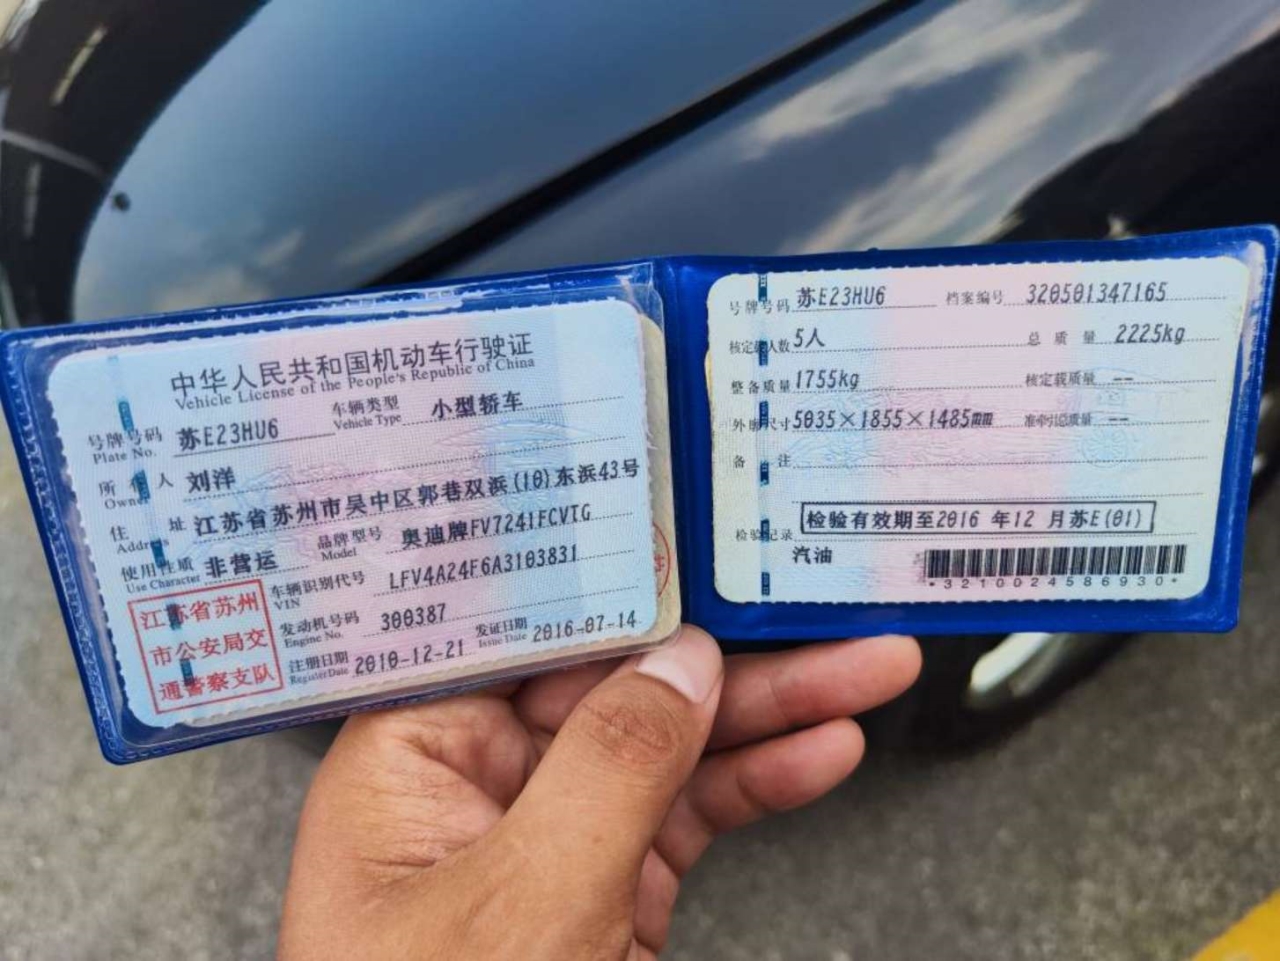 中华人民共和国机动车行驶证
Vehicle License of the People's Republic of China
号牌号码 苏E23HU6 车辆类型 小型轿车
Plate No. Vehicle Type
所有人 刘洋
Owner
住址 江苏省苏州市吴中区郭巷双浜(10)东浜43号
Address
使用性质 非营运 品牌型号 奥迪牌FV7241FCVTG
Use Character Model
车辆识别代号 LFV4A24F6A3103831
VIN
发动机号码 300387
Engine No.
注册日期 2010-12-21 发证日期 2016-07-14
Register Date Issue Date
江苏省苏州
市公安局交
通警察支队
号牌号码 苏E23HU6 档案编号 320501347165
核定载人数 5人 总质量 2225kg
整备质量 1755kg 核定载质量 --
外廓尺寸 5035×1855×1485mm 准牵引总质量 --
备注
检验记录 检验有效期至2016 年12 月苏E(01)
汽油
*3210024586930*